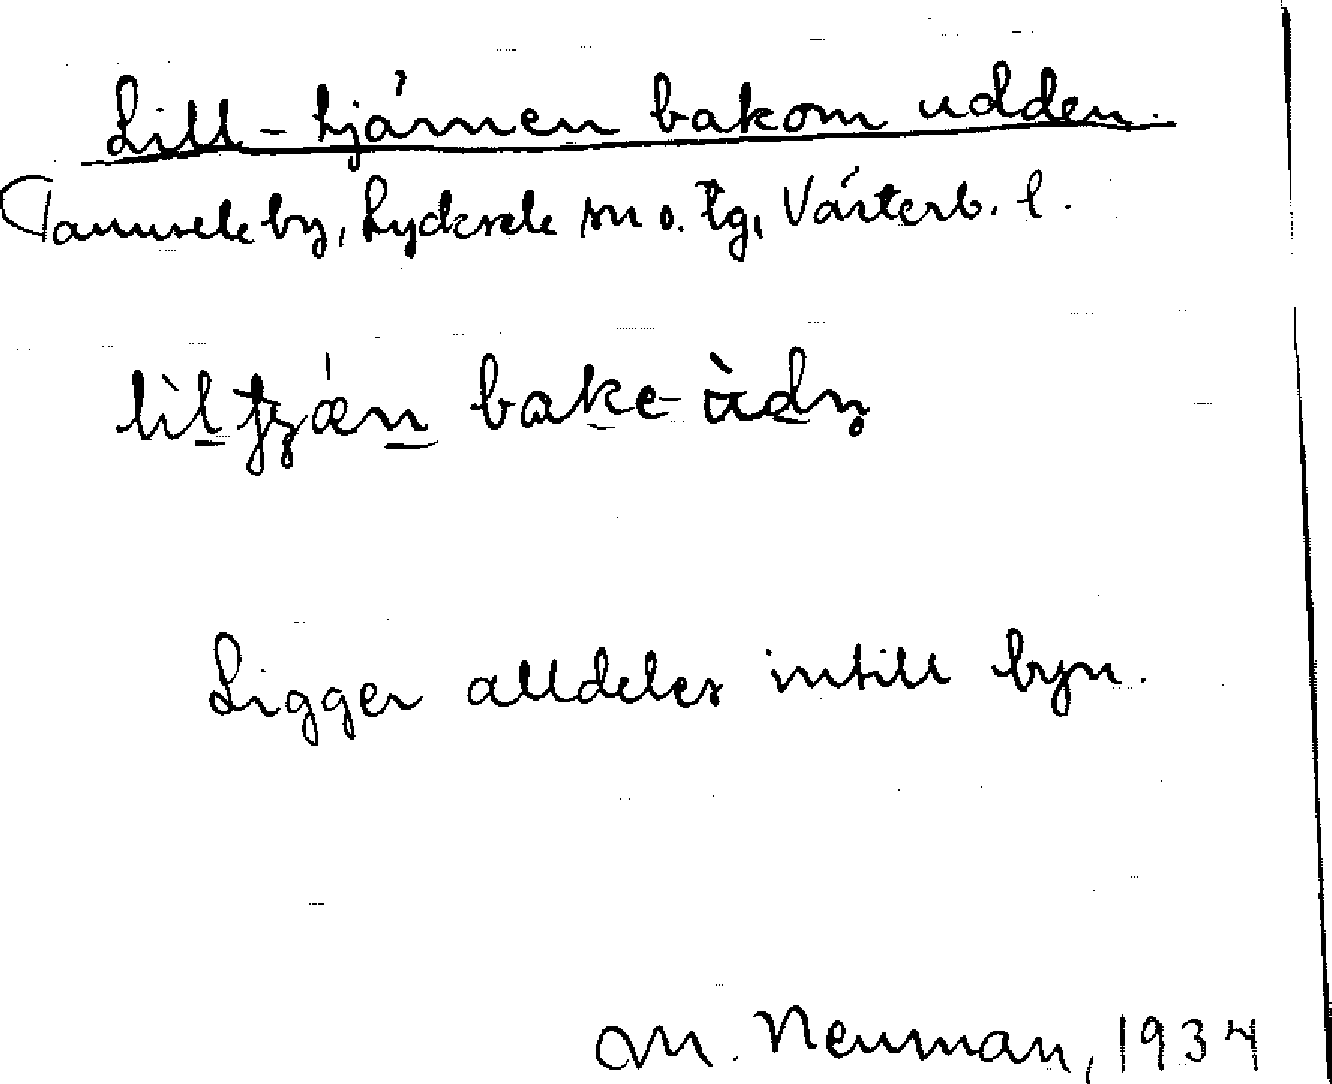 Lill-tjärnen bakom udden.
Tannsele by, Lycksele sn o. tg, Västerb. l.
Ligger alldeles intill byn.
M. Neuman, 1934